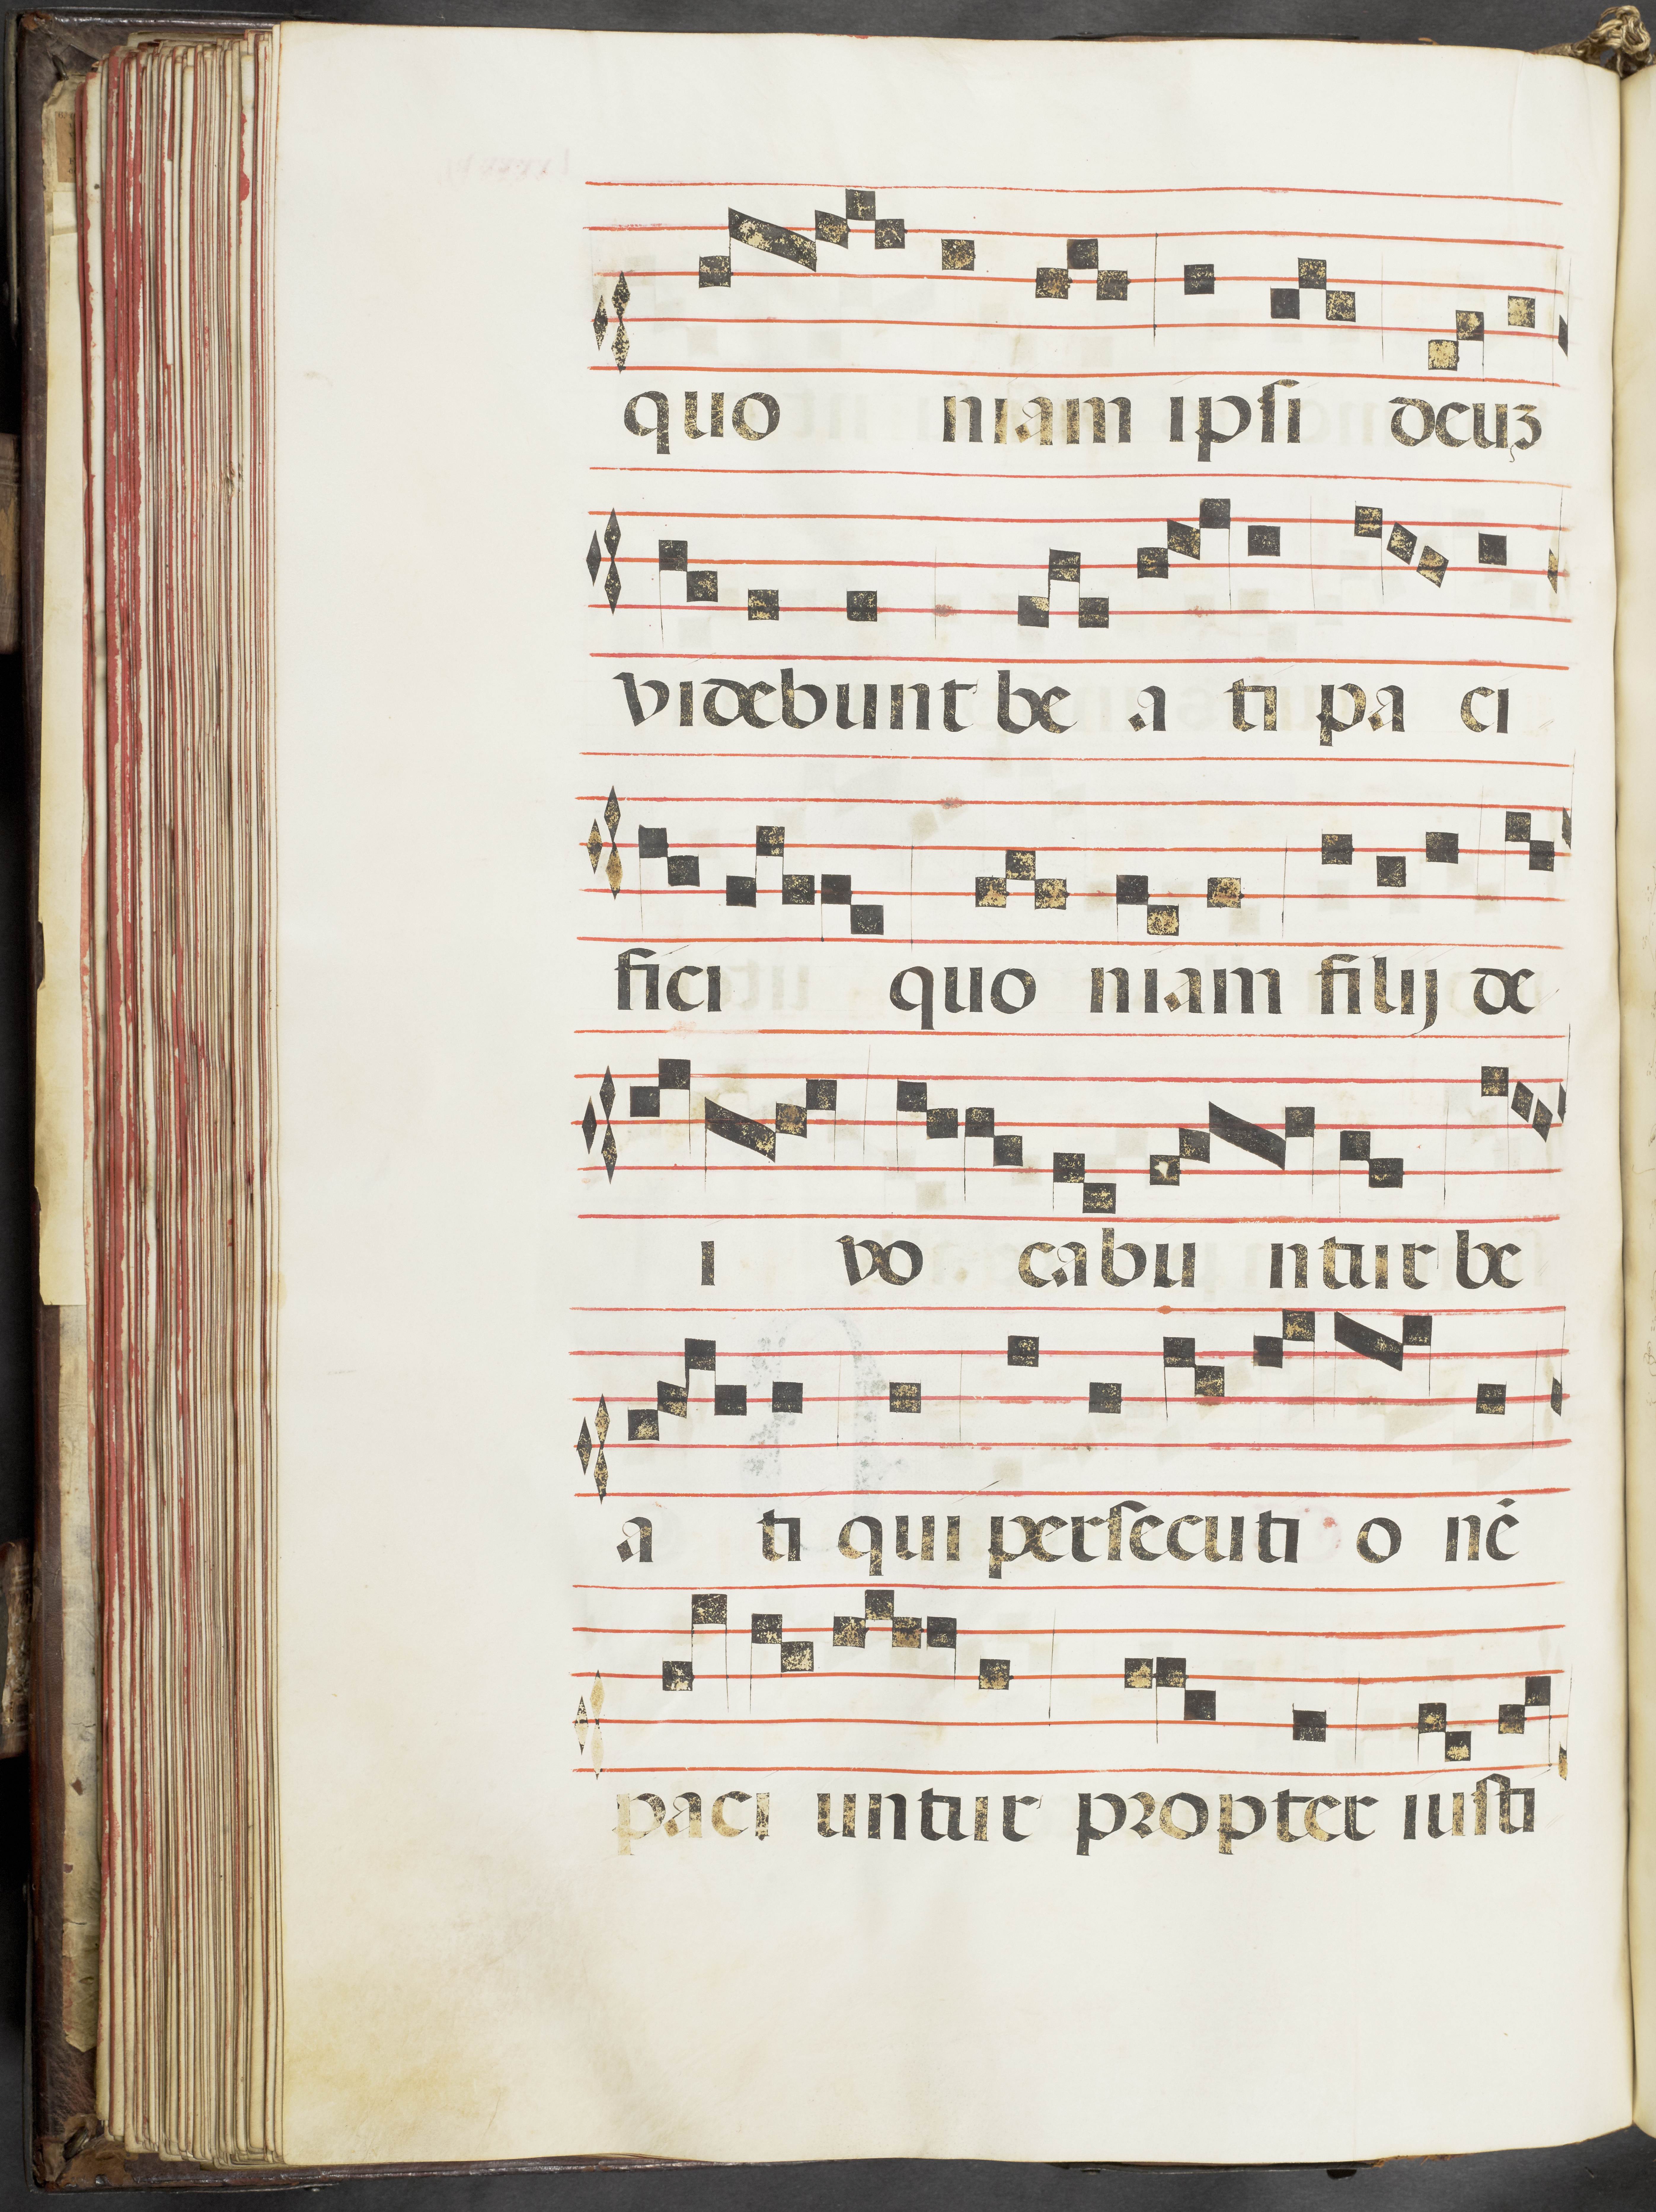 quo niam ipſi deuʒ
videbunt be a ti pa ci
fici quo niam filij de
i vo cabu ntur be
a ti qui perſecuti o nē
paci untur propter iuſti